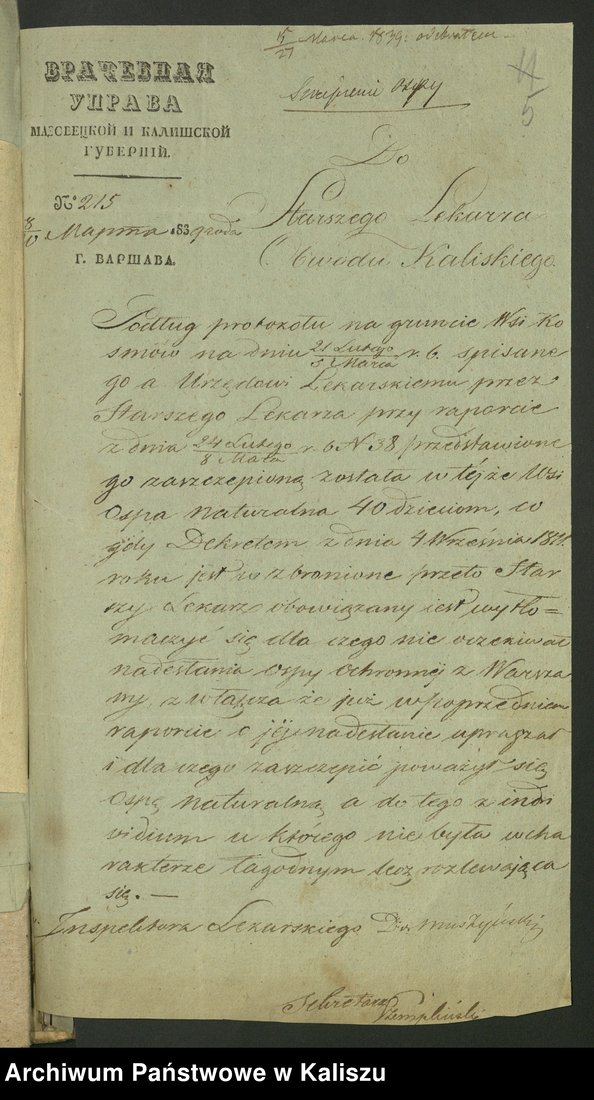 15/27 Marca 1839. odebrałem
Szczepienie Ospy
4
5
ВРАЧЕБНАЯ
УПРАВА
МАЗОВЕЦКОЙ И КАЛИШСКОЙ
ГУБЕРНІЙ.
№ 215
Марта 1839 года
Г. ВАРШАВА.
Do
Starszego Lekarza
Obwodu Kaliskiego.
Podług protokołu na gruncie Wsi Ko
smów na dniu 21 Lutego/5 Marca r. b. spisane
go a Urzędowi Lekarskiemu przez
Starszego Lekarza przy raporcie
z dnia 24 Lutego/8 Marca r. b. N 38 przedstawione
go zaszczepioną została w téjże Wsi
Ospa naturalna 40 dzieciom, co
gdy Dekretem z dnia 4 Września
roku jest wzbronione przeto Star
szy Lekarz obowiązany iest wytło=
maczyć się dla czego nie oczekiwał
nadesłania Ospy ochronnéj z Warsza
wy, zwłaszcza że już w poprzednim
raporcie o jéj nadesłanie upraszał
i dla czego zaszczepić poważył się
Ospę naturalną a do tego z indi
vidium u którego nie była w cha
rakterze łagodnym lecz rozlewająca
się. —
Inspektora Lekarskiego
Sekretarz
Archiwum Państwowe w Kaliszu